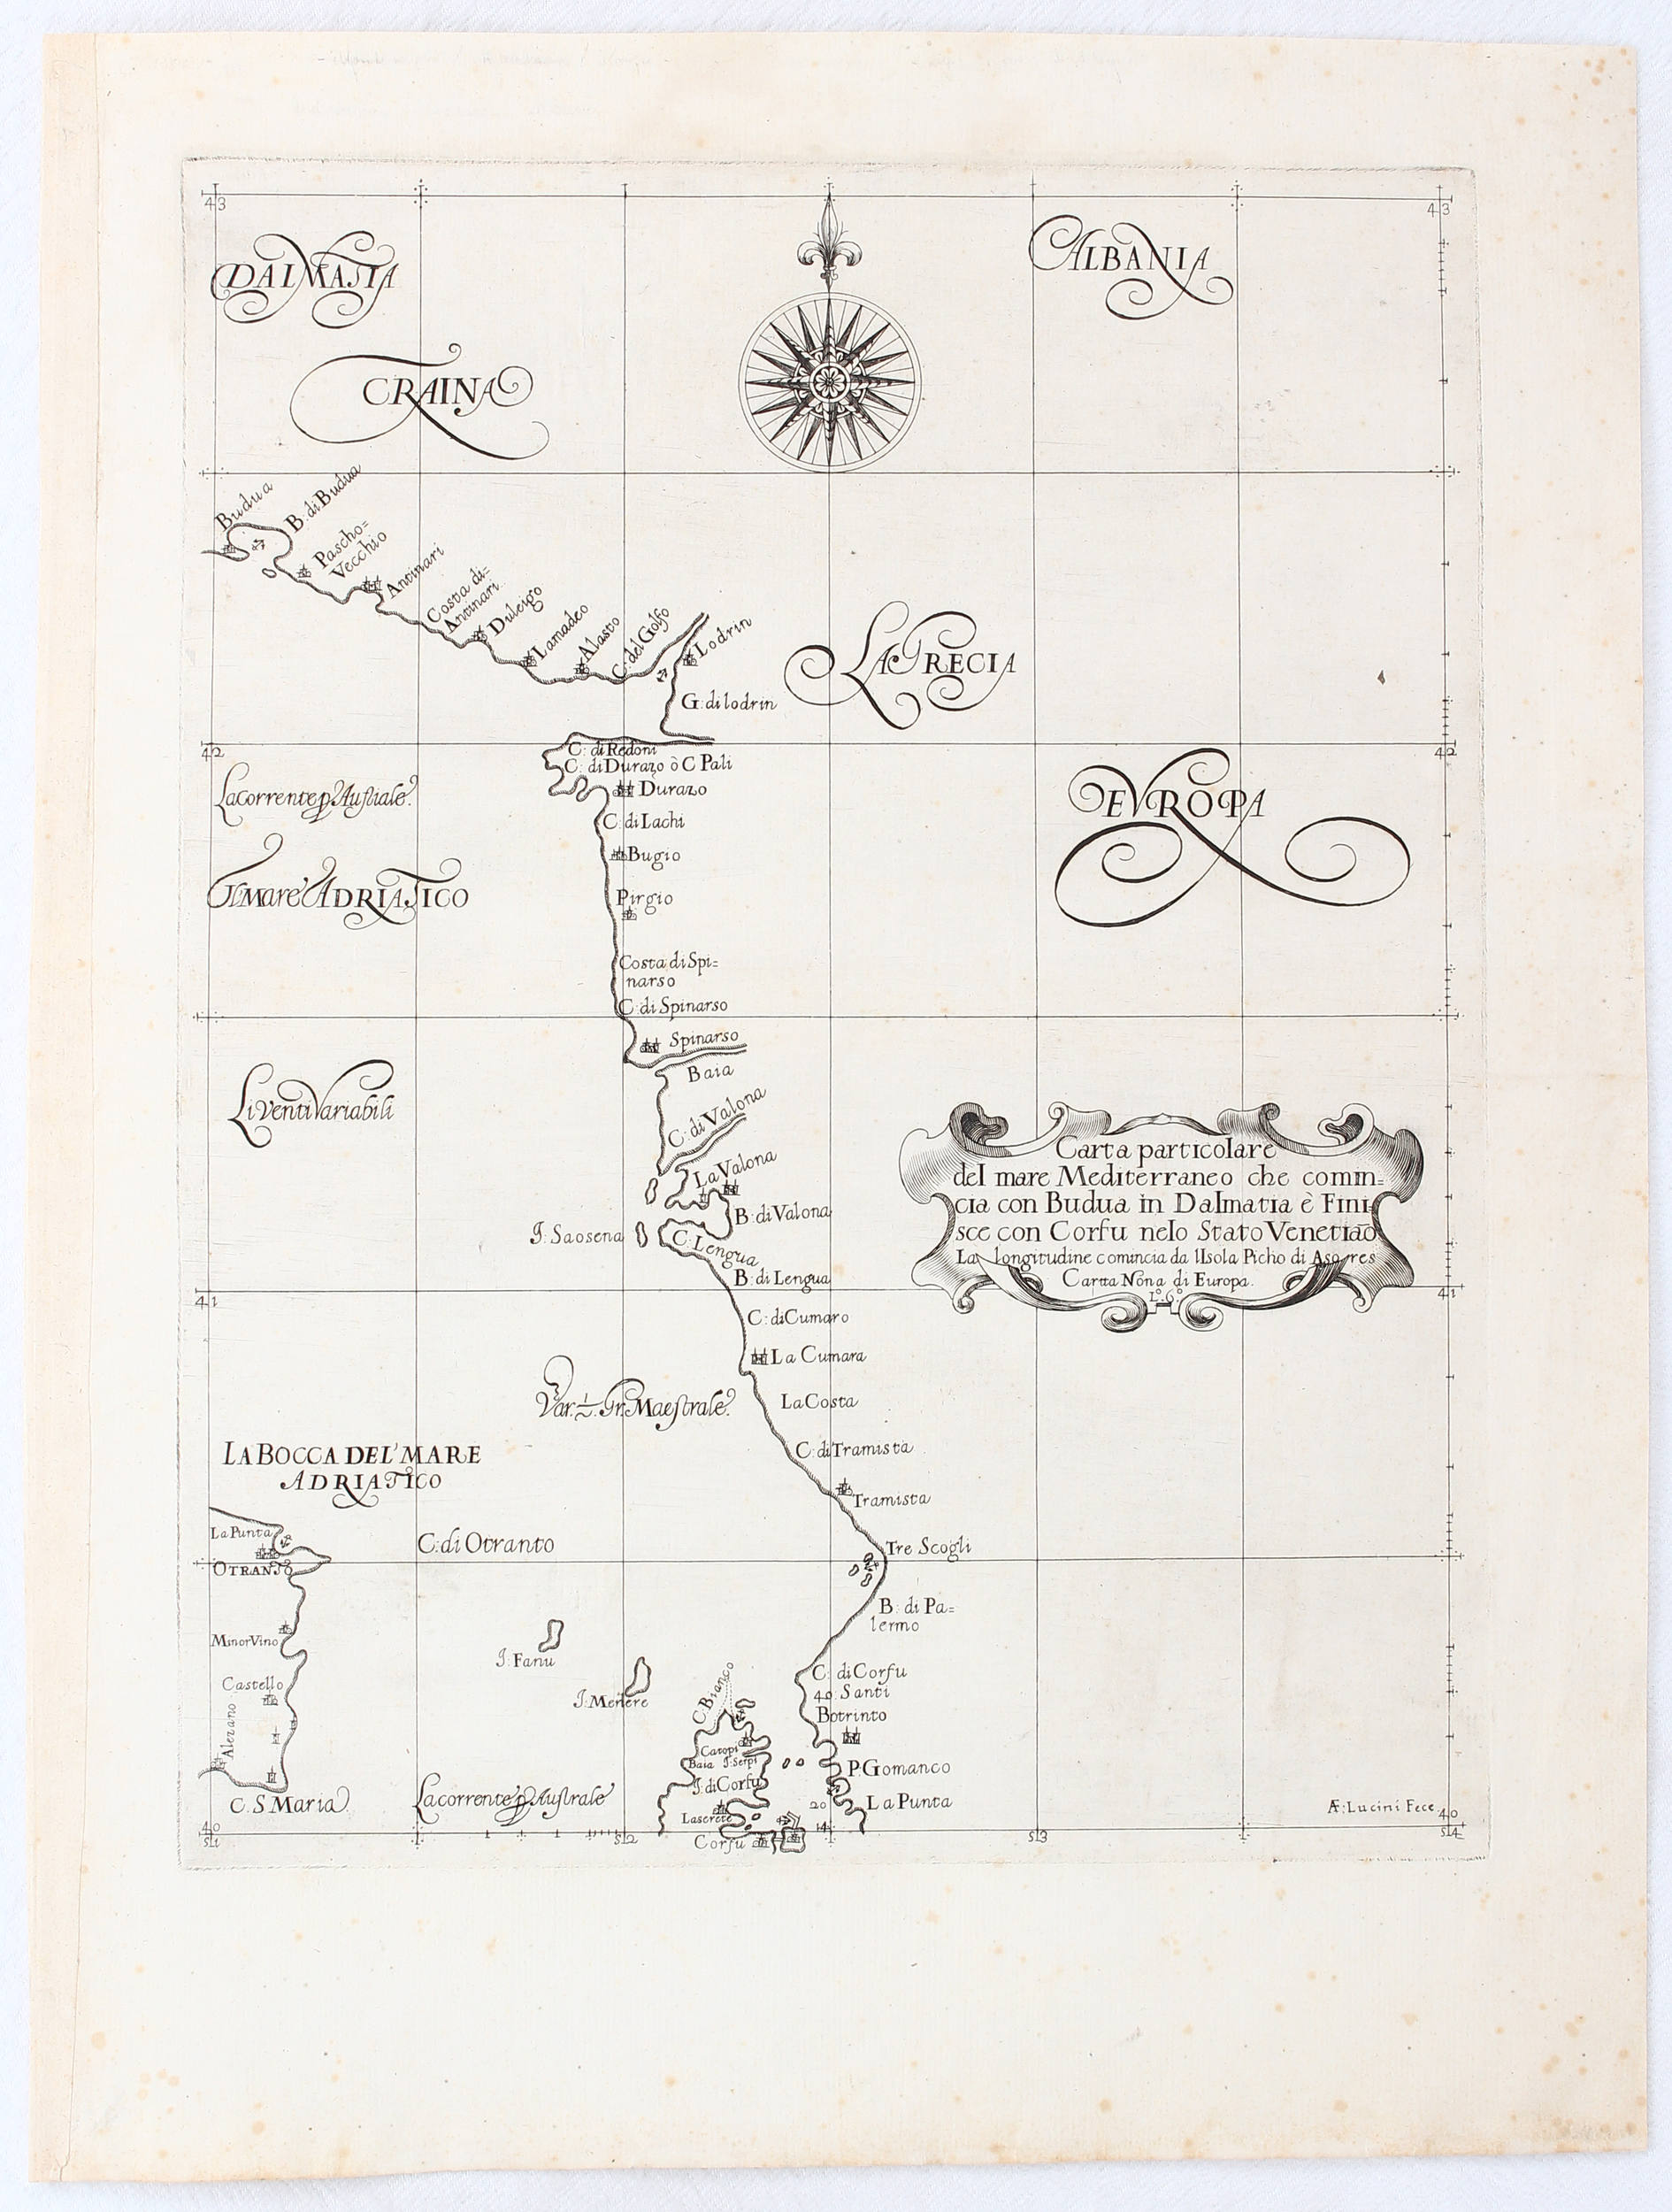 43
43
DALMATIA
ALBANIA
CRAINA
Budua
B. di Budua
Pascho=
Vecchio
Antinari
Costa di=
Antinari
Dulcigo
Lamadeo
Alasto
C: del Golfo
Lodrin
LA GRECIA
G: di lodrin
42
42
C: di Redoni
C: di Durazo ò C Pali
Durazo
EVROPA
La corrente p Australe.
C: di Lachi
Bugio
Il Mare ADRIATICO
Pirgio
Costa di Spi=
narso
C: di Spinarso
Spinarso
Baia
Li venti Variabili
C: di Valona
La Valona
B: di Valona
I: Saosena
C: Lengua
B: di Lengua
Carta particolare
del mare Mediterraneo che comin=
cia con Budua in Dalmatia è Fini
sce con Corfu nelo Stato Venetiaō
La longitudine comincia da l'Isola Picho di Asores
Cartta Nona di Europa.
L.º 6.º
41
41
C: di Cumaro
La Cumara
Var. ½. Gr. Maestrale.
La Costa
C: di Tramista
LA BOCCA DEL' MARE
ADRIATICO
Tramista
La Punta
OTRANTO
C: di Otranto
Tre Scogli
B: di Pa=
lermo
Minor Vino
I: Fanu
Castello
I: Merlere
C: Bianco
C: di Corfu
40 Santi
Botrinto
Alezano
Catopi
Baia
I: Serpi
I: di Corfu
P. Gomanco
C. S. Maria
La corrente p Australe
20
La Punta
14
Corfu
Æ: Lucini Fece
40
40
51
52
53
54